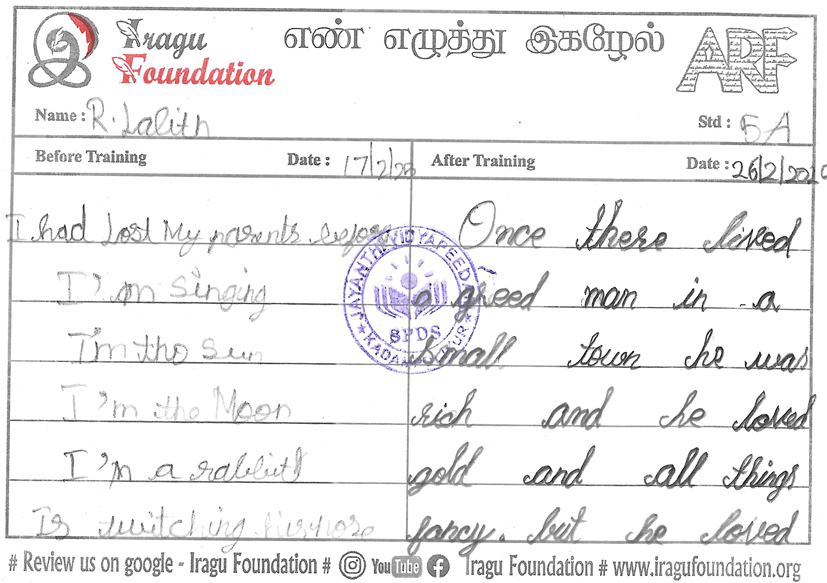 Iragu Foundation
எண் எழுத்து இகழேல்
ARF
Name : R. Lalith
Std : 5A
Before Training
Date : 17/2/20
After Training
Date : 26/2/2020
I had lost My parents before
I'm singing
I'm tho sun
I'm the Moon
I'm a rabbit
Is twitching his nose
Once there lived
a greed man in a
small town he was
rich and he loved
gold and all things
fancy. but he loved
JAYANTHI VIDYAPEED
SPDS
# Review us on google - Iragu Foundation # YouTube Iragu Foundation # www.iragufoundation.org